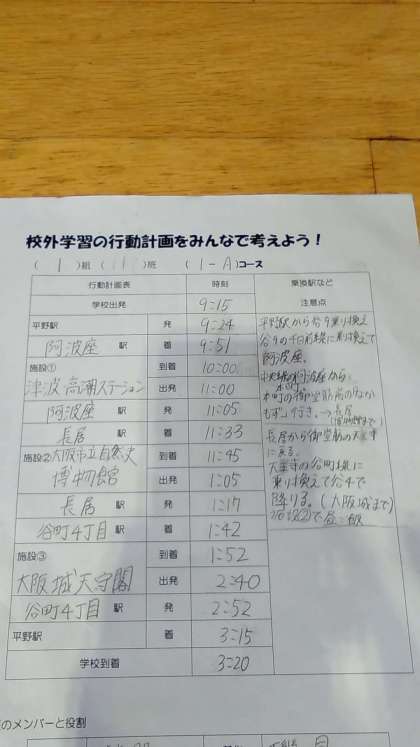 校外学習の行動計画をみんなで考えよう!
( 1 )組 ( )班 ( 1-A )コース
行動計画表 時刻 乗換駅など
学校出発 9:15 注意点
平野駅 発 9:24
阿波座 駅 着 9:51
施設① 到着 10:00
津波高潮ステーション 出発 11:00
阿波座 駅 発 11:05
長居 駅 着 11:33
施設②大阪市立自然史 到着 11:45
博物館 出発 1:05
長居 駅 発 1:17
谷町4丁目 駅 着 1:42
施設③ 到着 1:52
大阪城天守閣 出発 2:40
谷町4丁目 駅 発 2:52
平野駅 着 3:15
学校到着 3:20
平野駅から谷9乗り換え
谷9の千日前線に乗り換えて
阿波座。
阿波座から
本町の御堂筋線のなか
もず行き。→長居
長居から御堂筋の天王寺
に戻る。
天王寺の谷町線に
乗り換えて谷4で
降りる。(大阪城まで)
のメンバーと役割